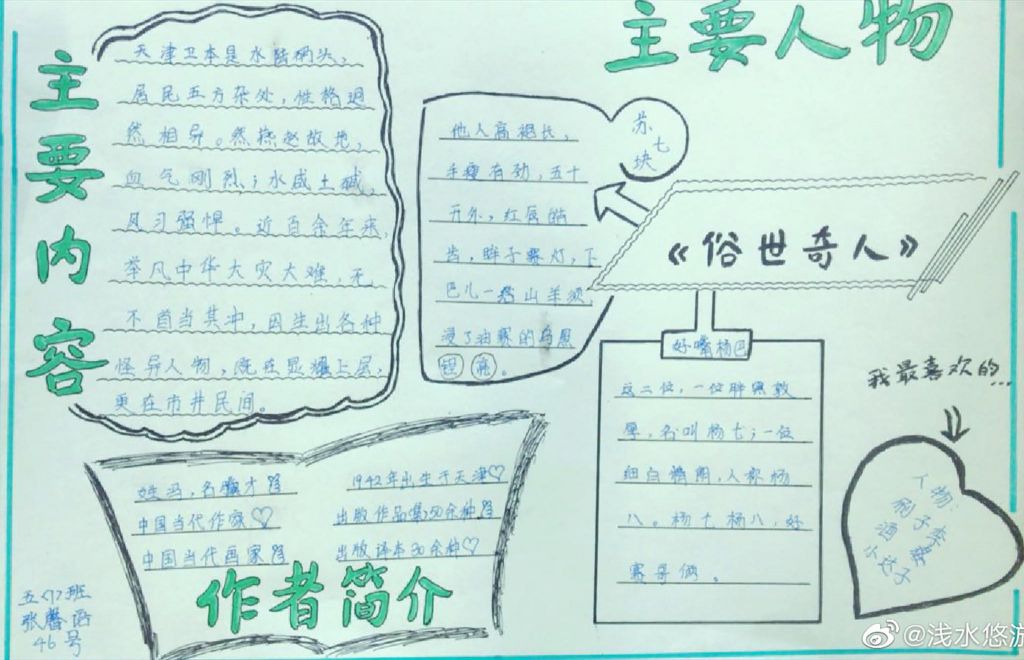 主要内容
天津卫本是水陆码头，
居民五方杂处，性格迥
然相异。然燕赵故地，
血气刚烈；水咸土碱，
风习强悍。近百余年来，
举凡中华大灾大难，无
不首当其冲，因生出各种
怪异人物，既在显耀上层，
更在市井民间。
主要人物
苏七块
他人高袍长，
手瘦有劲，五十
开外，红唇皓
齿，眸子赛灯，下
巴儿一绺山羊须，
浸了油赛的乌黑
锃亮。
《俗世奇人》
好嘴杨巴
这二位，一位胖黑敦
厚，名叫杨七；一位
细白精明，人称杨
八。杨七杨八，好
赛哥俩。
我最喜欢的...
人物：
刷子李
酒婆
小达子
姓冯，名骥才
中国当代作家♡
中国当代画家
1942年出生于天津♡
出版作品50余种
出版译本30余种♡
作者简介
五〈7〉班
张馨
46号
@浅水悠游